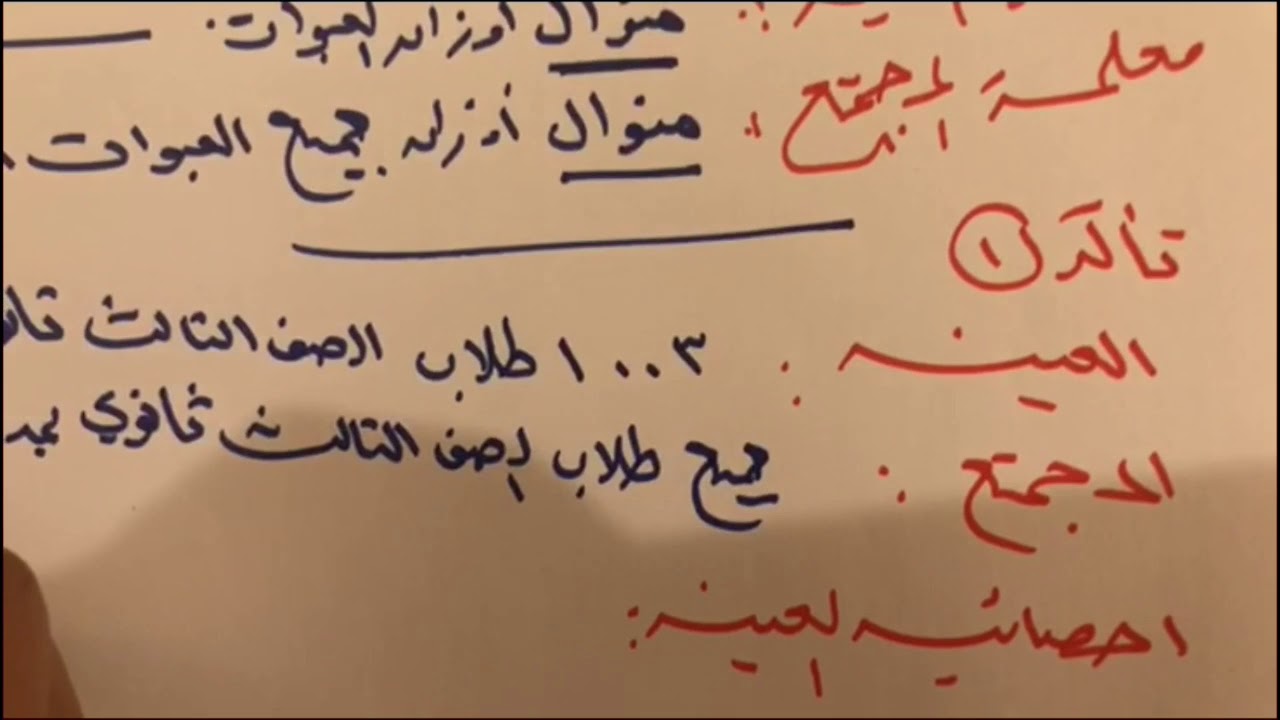 منوال أوزان العبوات.
معلمة المجتمع : منوال أوزان جميع العبوات
تأكد ١
العينه : ١٠٠٣ طلاب الصف الثالث
المجتمع : جميع طلاب الصف الثالث ثانوي
احصائيه العينه :